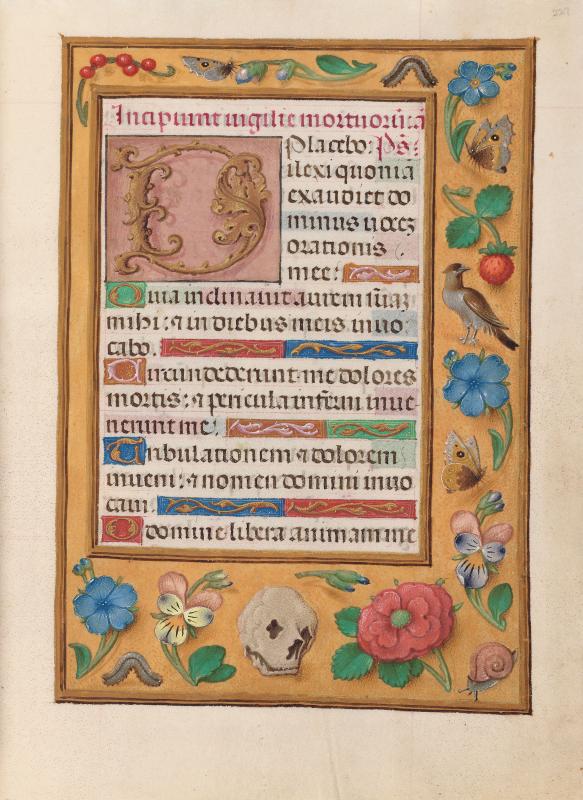 227
Incipiunt vigilie mortuorū. añ
Placebo: Ps:
Dilexi quoniā
exaudiet do
minus vocē
orationis
mee:
Quia inclinavit aurem suaȝ
mihi: ⁊ in diebus meis invo
cabo.
Circundederunt me dolores
mortis: ⁊ pericula inferni inve-
nerunt me.
Tribulationem ⁊ dolorem
inveni: ⁊ nomen domini invo
cavi.
O domine libera animam me